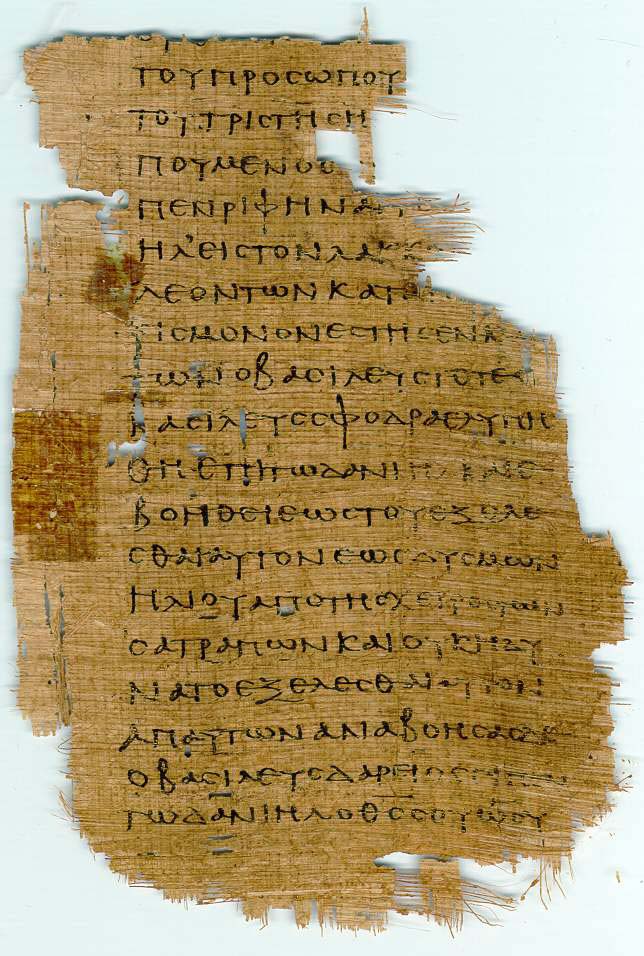 ΤΟΥΠΡΟϹΩΠΟΥ
ΤΟΥΤΡΙϹΤΗϹΗ
ΠΟΥΜΕΝΟϹ
ΠΕΝΡΙΦΗΝΑΙΤΟ
ΗΛΕΙϹΤΟΝΛΑΚΚΟ
ΛΕΟΝΤΩΝΚΑΤΑ
ΓΙϹΜΟΝΟΝΕϹΤΗϹΕΝΑ
ΤΩΝΟΒΑϹΙΛΕΥϹΤΟΤΕ
ΒΑϹΙΛΕΥϹϹΦΟΔΡΑΕΛΥΠΗ
ΘΗΕΠΙΤΩΔΑΝΙΗΛΚΑΙΕ
ΒΟΗΘΕΙΕΩϹΤΟΥΕΞΕΛΕ
ϹΘΑΙΑΥΤΟΝΕΩϹΔΥϹΜΩΝ
ΗΛΙΟΥΑΠΟΤΗϹΧΕΙΡΟϹΤΩΝ
ϹΑΤΡΑΠΩΝΚΑΙΟΥΚΗΔΥ
ΝΑΤΟΕΞΕΛΕϹΘΑΙΑΥΤΟΝ
ΑΠΑΥΤΩΝΑΝΑΒΟΗϹΑϹΔΕ
ΟΒΑϹΙΛΕΥϹΔΑΡΕΙΟϹΕΙΠΕΝ
ΤΩΔΑΝΙΗΛΟΘ̅Ϲ̅ϹΟΥΩϹΥ